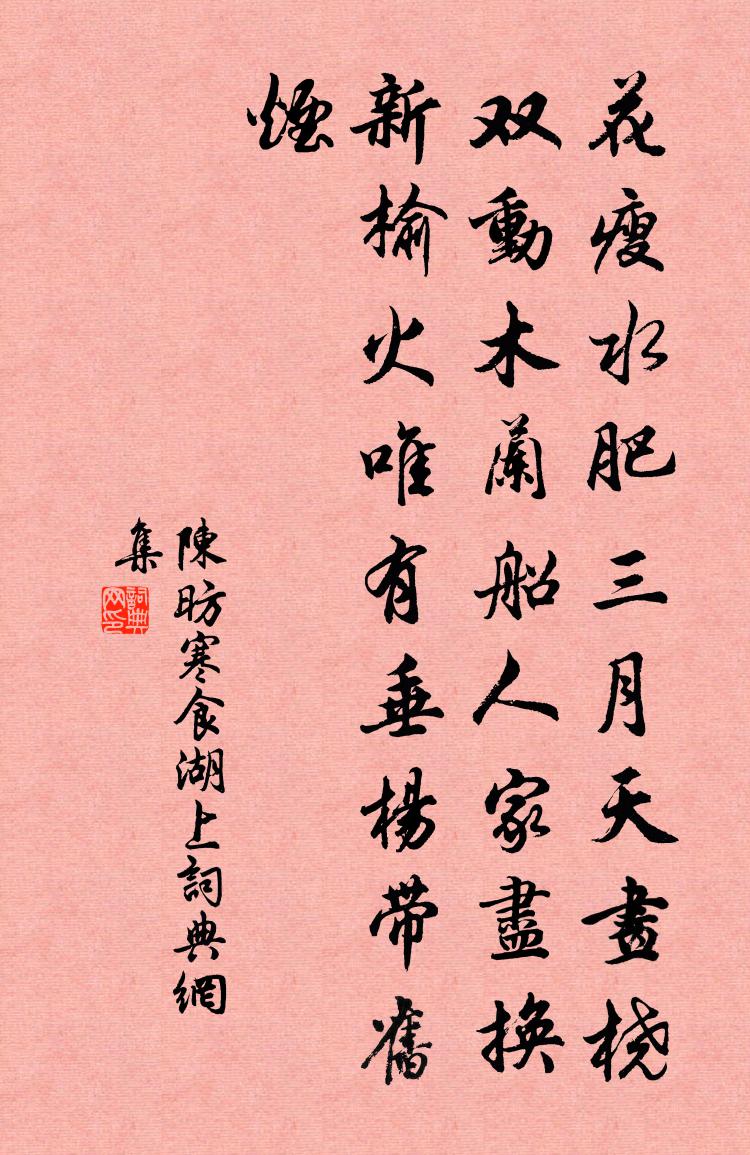 花瘦水肥三月天畫桡
双動木蘭船人家盡換
新榆火唯有垂楊带舊
煙
陳昉寒食湖上詞典網
集
詞典
网印